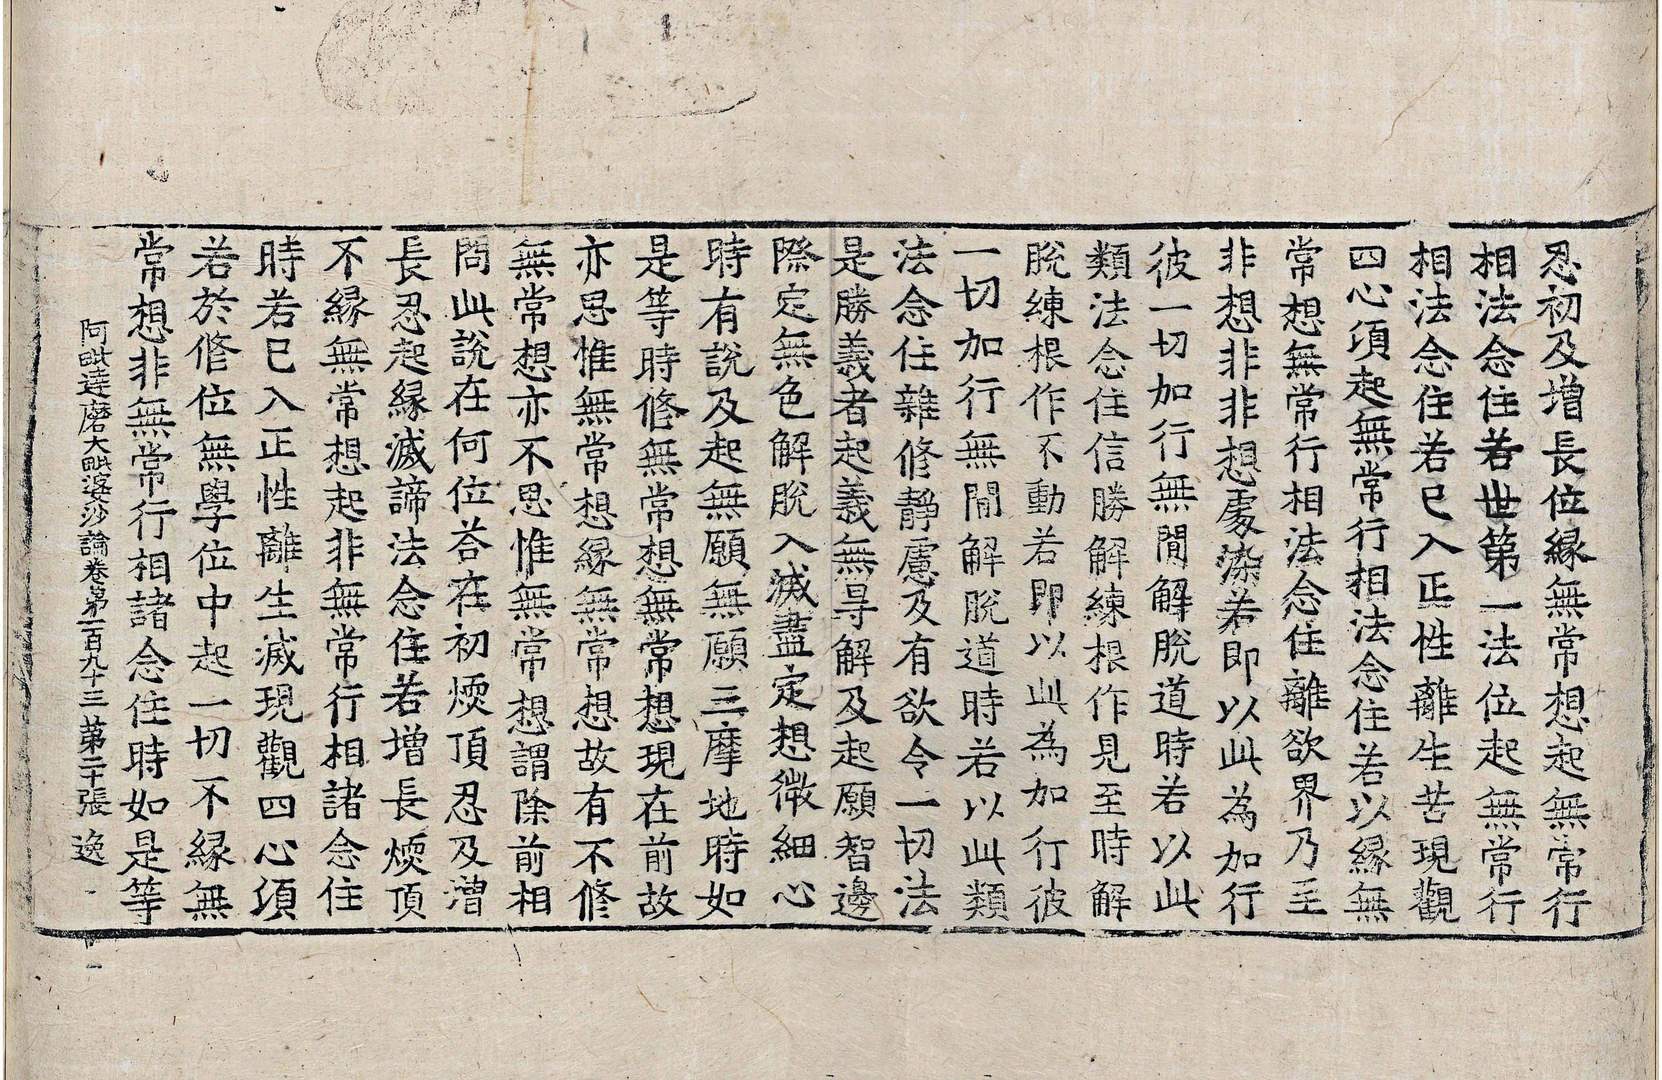 忍初及增長位緣無常想起無常行
相法念住若世第一法位起無常行
相法念住若已入正性離生苦現觀
四心須起無常行相法念住若以緣無
常想無常行相法念住離欲界乃至
非想非非想處染若即以此為加行
彼一切加行無間解脫道時若以此
類法念住信勝解練根作見至時解
脫練根作不動若即以此為加行彼
一切加行無間解脫道時若以此類
法念住雜修靜慮及有欲令一切法
是勝義者起義無㝵解及起願智邊
際定無色解脫入滅盡定想微細心
時有說及起無願無願三摩地時如
是等時修無常想無常想現在前故
亦思惟無常想緣無常想故有不修
無常想亦不思惟無常想謂除前相
問此說在何位荅在初煗頂忍及增
長忍起緣滅諦法念住若增長煗頂
不緣無常想起非無常行相諸念住
時若已入正性離生滅現觀四心須
若於修位無學位中起一切不緣無
常想非無常行相諸念住時如是等
阿毗達磨大毗婆沙論卷第一百九十三 第二十張 逸